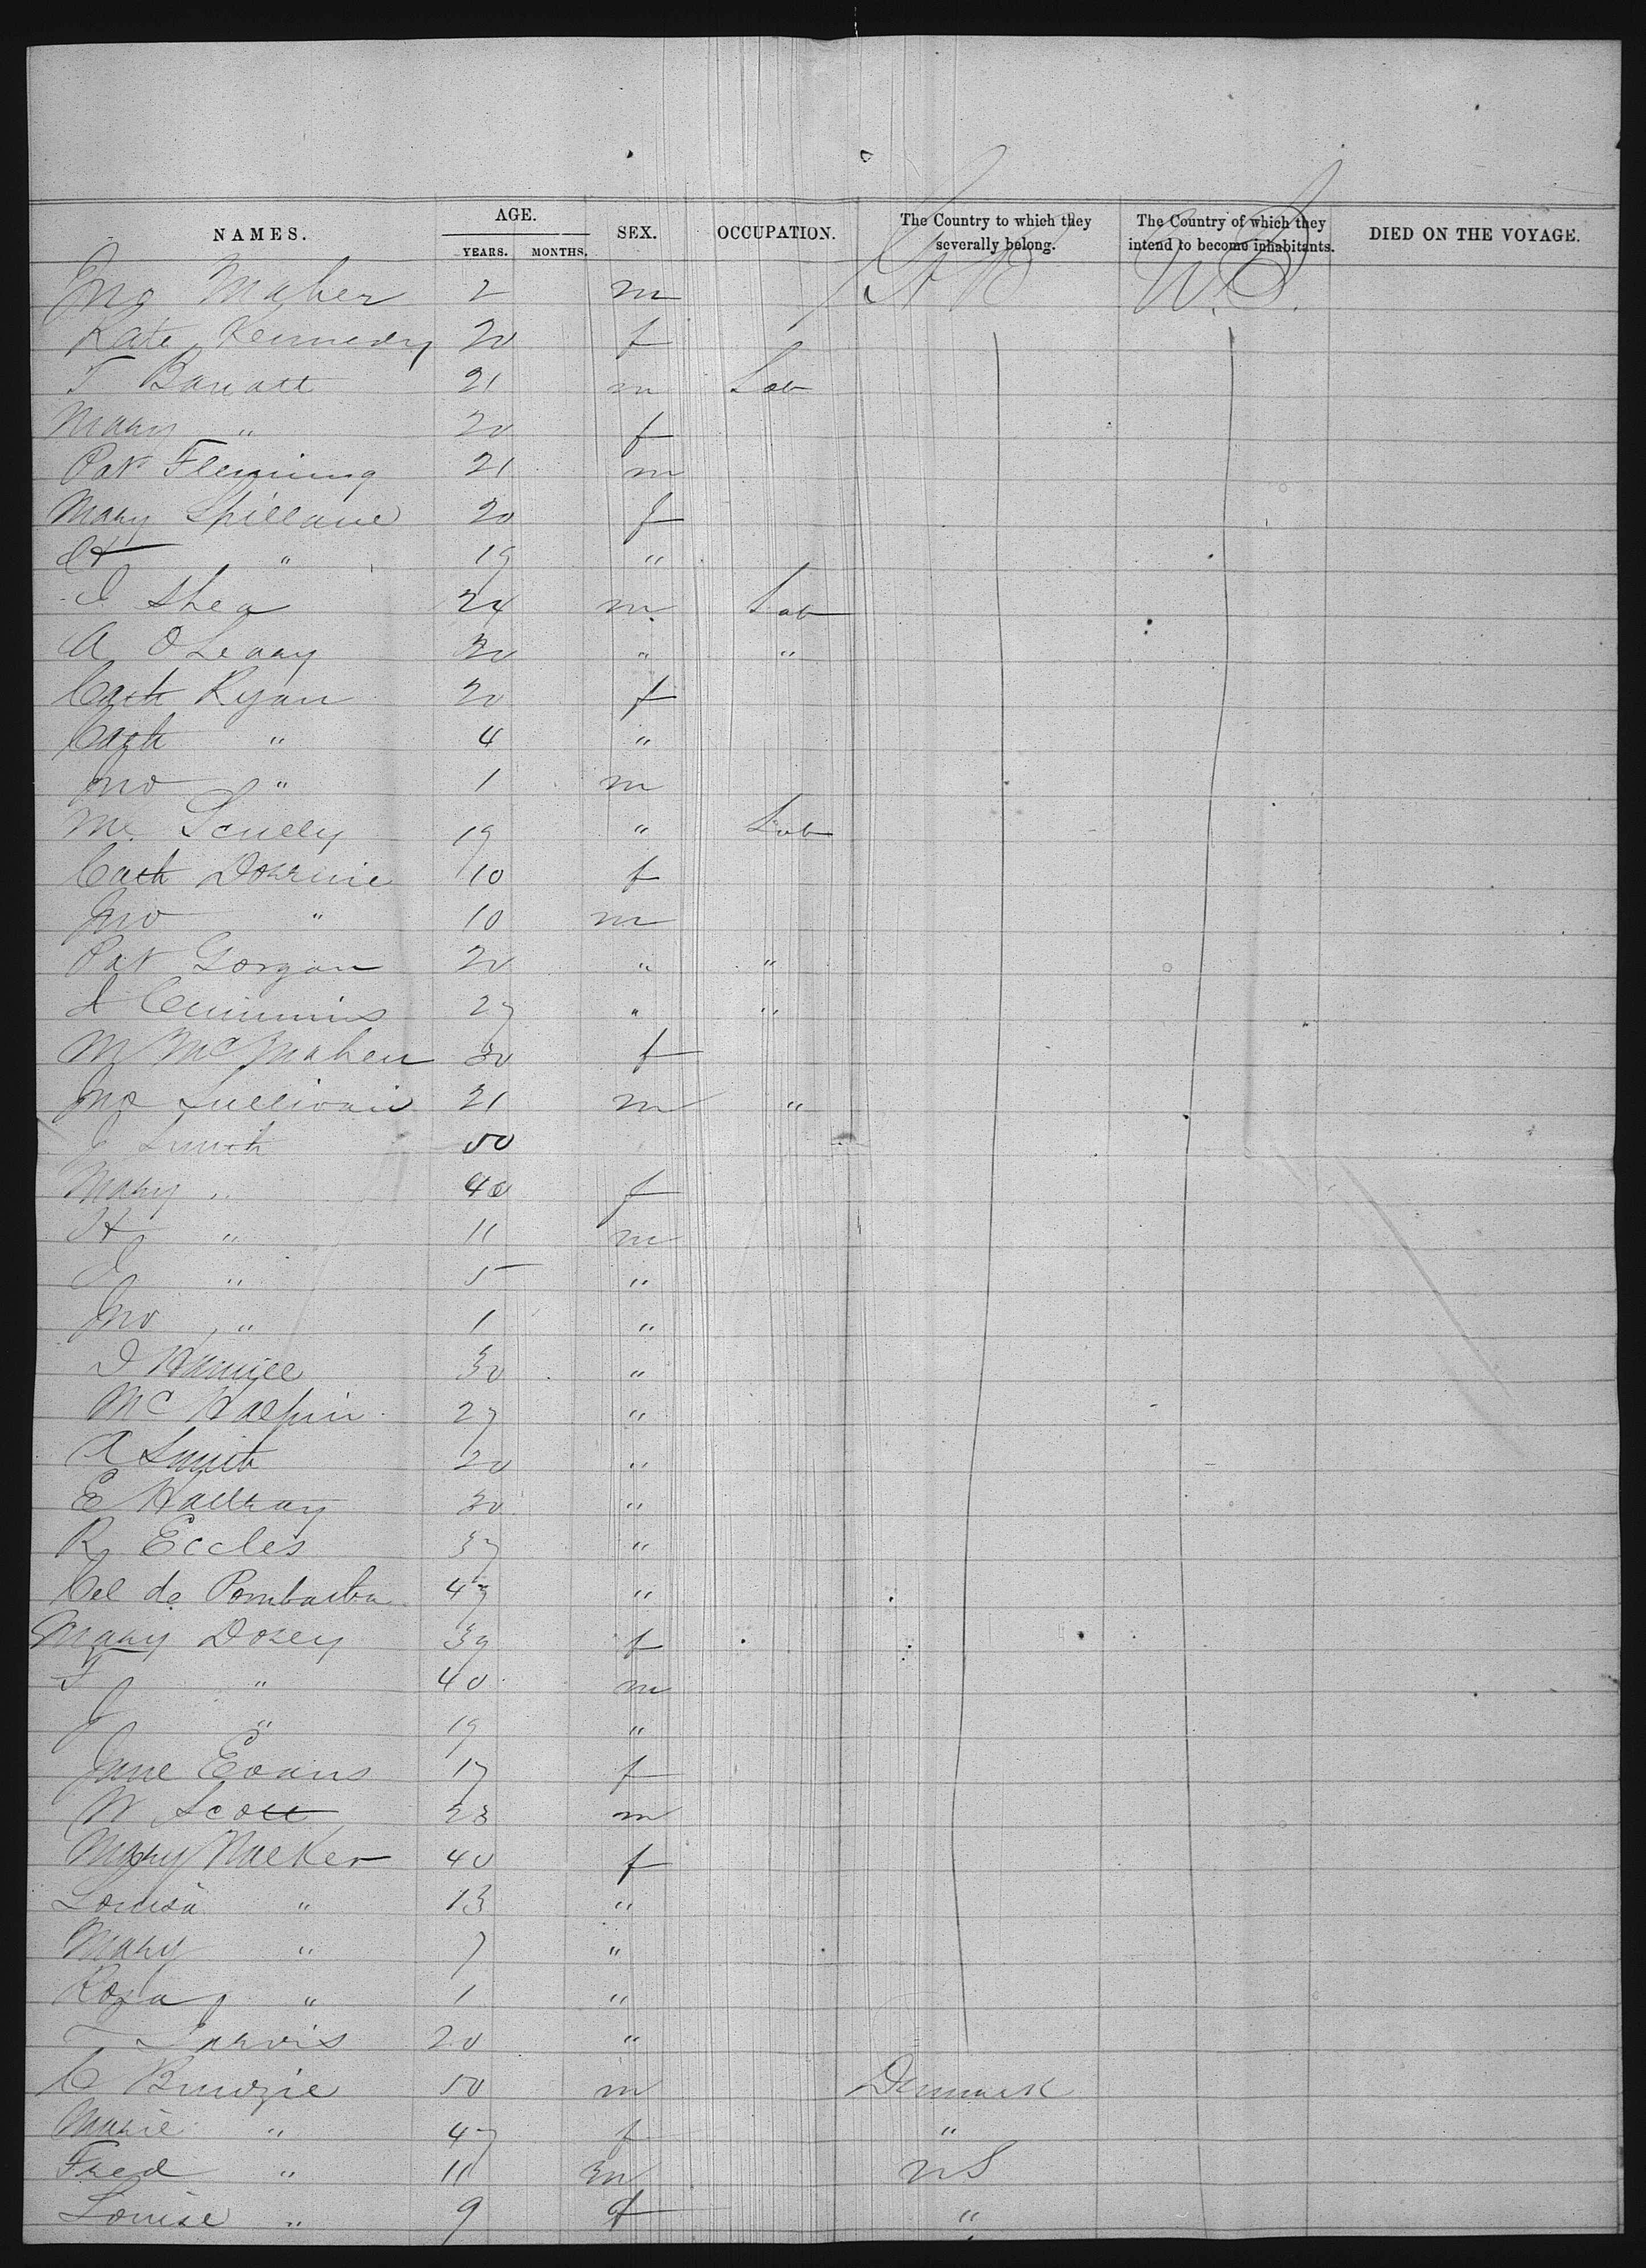 NAMES. AGE. YEARS. MONTHS. SEX. OCCUPATION. The Country to which they severally belong. The Country of which they intend to become inhabitants. DIED ON THE VOYAGE.
Jno Maher 2 m U.S.
Kate Kennedy 20 f
T 21 m Lab
Mary " 20 f
Pat Fleming 21 m
Mary Spillane 20 f
" 19 "
J Shea 24 m Lab
A O Leary 30 " "
Cath Ryan 20 f
Cath " 4 "
Jno " 1 m
Ml Scully 19 " Lab
Cath 10 f
Jno " 10 m
Pat Gorgan 20 " "
J Cummins 27 " "
M McMahen 30 f
Jno Sullivan 21 m "
J Smith 50
Mary " 40 f
H " 11 m
J " 5 "
Jno " 1 "
30 "
Mc Halpin 27 "
A Smith 20 "
E 30 "
R Eccles 37 "
de 47 "
Mary Dorey 39 f
T " 40 m
J " 19 "
Jane Evans 17 f
W Scott 28 m
Mary Walker 40 f
Louisa " 13 "
Mary " 7 "
Rosa " 1 "
T Jarvis 20 "
C 50 m Denmark
Marie " 47 f "
Fred " 11 m US
Louise " 9 f "